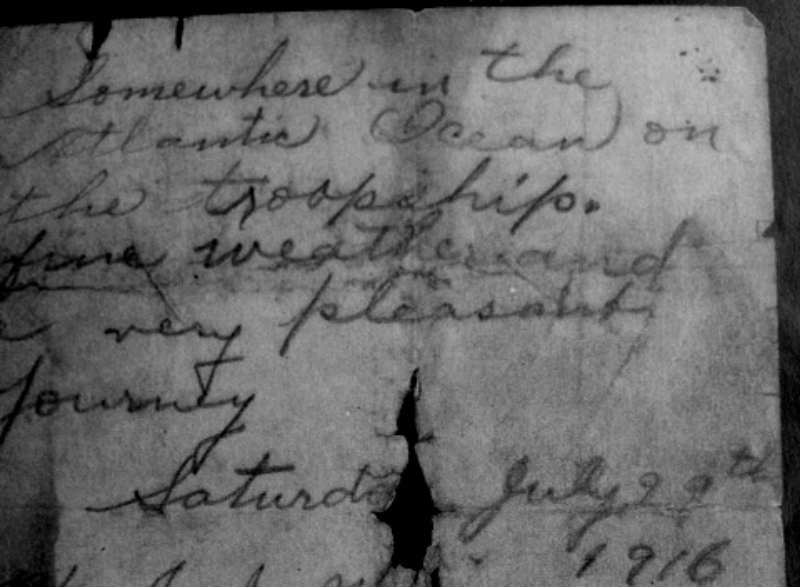 Somewhere in the
Atlantic Ocean on
the troopship.
fine weather and
a very pleasant
journey
Saturda July 29th
1916